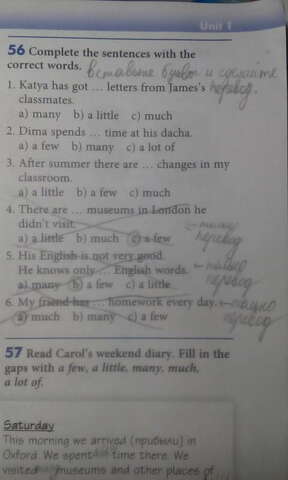 Unit 1
56 Complete the sentences with the
correct words. вставьте буквы и сделайте
1. Katya has got ... letters from James's перевод.
classmates.
a) many b) a little c) much
2. Dima spends ... time at his dacha.
a) a few b) many c) a lot of
3. After summer there are ... changes in my
classroom.
a) a little b) a few c) much
4. There are ... museums in London he
didn't visit. только
a) a little b) much c) a few перевод
5. His English is not very good.
He knows only ... English words. только
a) many b) a few c) a little перевод
6. My friend has ... homework every day. только
a) much b) many c) a few перевод
57 Read Carol's weekend diary. Fill in the
gaps with a few, a little, many, much,
a lot of.
Saturday
This morning we arrived (прибыли) in
Oxford. We spent time there. We
visited museums and other places of